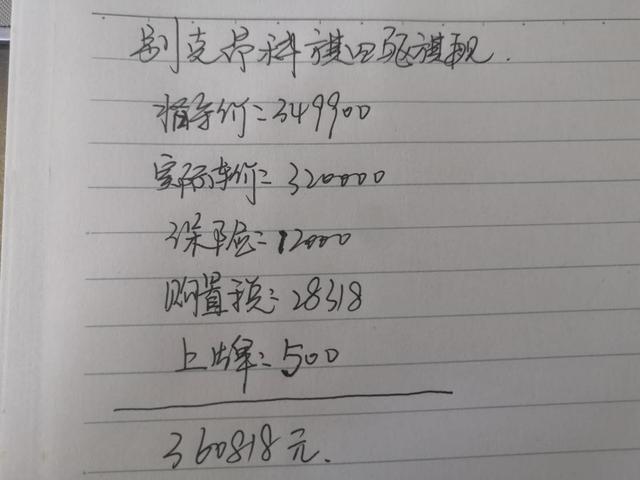 别克昂科旗四驱旗舰.
指导价=349900
实际车价=320000
保险=12000
购置税=28318
上牌=500
360818元.